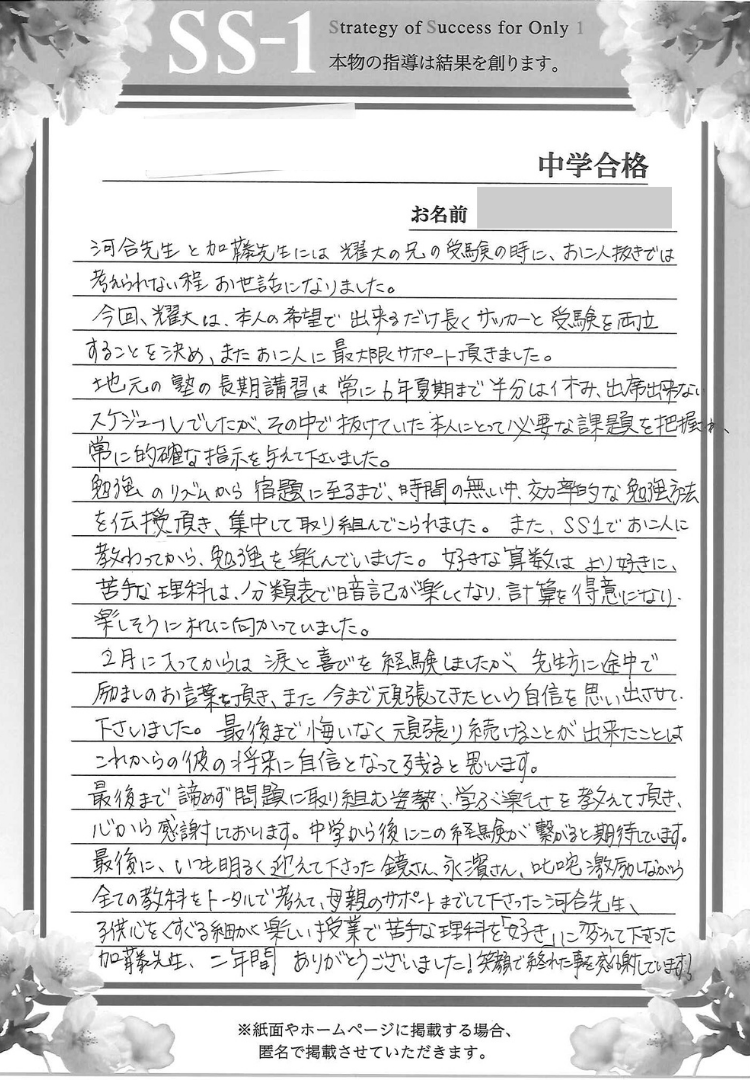 SS-1
Strategy of Success for Only 1
本物の指導は結果を創ります。
中学合格
お名前
河合先生と加藤先生には耀大の兄の受験の時に、お二人抜きでは
考えられない程お世話になりました。
今回、耀大は、本人の希望で出来るだけ長くサッカーと受験を両立
することを決め、またお二人に最大限サポート頂きました。
地元の塾の長期講習は常に6年夏期まで半分は休み、出席出来ない
スケジュールでしたが、その中で抜けていた本人にとって必要な課題を把握され、
常に的確な指示を与えて下さいました。
勉強のリズムから宿題に至るまで、時間の無い中、効率的な勉強方法
を伝授頂き、集中して取り組んでこられました。また、SS1でお二人に
教わってから、勉強を楽しんでいました。好きな算数はより好きに、
苦手な理科は、分類表で暗記が楽しくなり、計算を得意になり、
楽しそうに机に向かっていました。
2月に入ってからは涙と喜びを経験しましたが、先生方に途中で
励ましのお言葉を頂き、また今まで頑張ってきたという自信を思い出させて
下さいました。最後まで悔いなく頑張り続けることが出来たことは
これからの彼の将来に自信となって残ると思います。
最後まで諦めず問題に取り組む姿勢、学ぶ楽しさを教えて頂き、
心から感謝しております。中学から後にこの経験が繋がると期待しています。
最後に、いつも明るく迎えて下さった鏡さん、永濱さん、叱咤激励しながら
全ての教科をトータルで考えて、母親のサポートまでして下さった河合先生、
子供心をくすぐる細かく楽しい授業で苦手な理科を「好き」に変えて下さった
加藤先生、二年間ありがとうございました!笑顔で終れた事を感謝しています!
※紙面やホームページに掲載する場合、
匿名で掲載させていただきます。